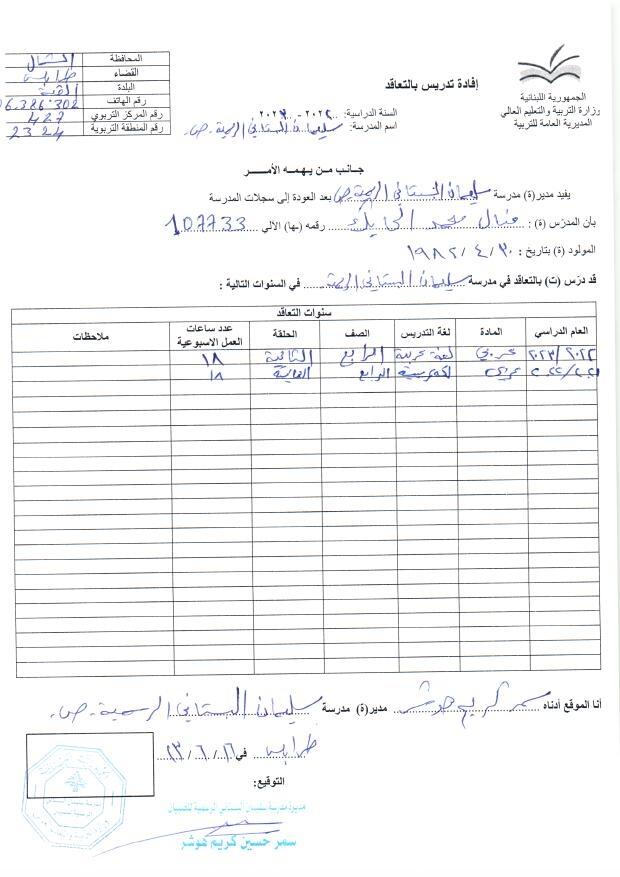 الجمهورية اللبنانية
وزارة التربية والتعليم العالي
المديرية العامة للتربية
المحافظة الشمال
القضاء طرابلس
البلدة القبة
رقم الهاتف 06.386.302
رقم المركز التربوي 427
رقم المنطقة التربوية 2324
إفادة تدريس بالتعاقد
السنة الدراسية: ٢٠٢٢-٢٠٢٣
اسم المدرسة: سليمان البستاني الرسمية ص.
جانب من يهمه الأمر
يفيد مدير(ة) مدرسة سليمان البستاني الرسمية ص بعد العودة إلى سجلات المدرسة
بأن المدرّس (ة) : منال محمد الحايك رقمه (ـها) الآلي 107733
المولود (ة) بتاريخ : ١٩٨٢/٤/٣٠
قد درّس (ت) بالتعاقد في مدرسة سليمان البستاني الرسمية في السنوات التالية :
سنوات التعاقد
العام الدراسي المادة لغة التدريس الصف الحلقة عدد ساعات العمل الاسبوعية ملاحظات
٢٠٢٢/٢٠٢٣ عربي لغة عربية الرابع الثانية ١٨
عربي الرابع الثانية ١٨
أنا الموقع أدناه سمر كريم هوشر مدير(ة) مدرسة سليمان البستاني الرسمية - ص.
طرابلس في
التوقيع:
مديرة مدرسة سليمان البستاني الرسمية للصبيان
سمر حسين كريم هوشر